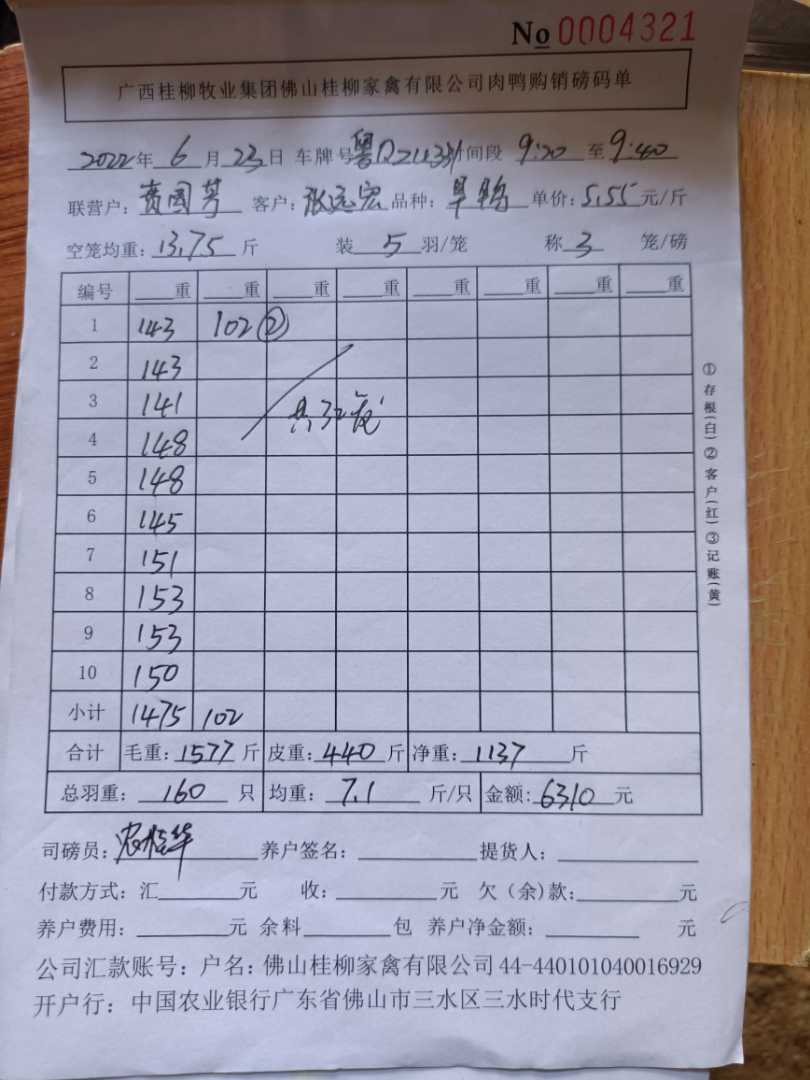 No 0004321
广西桂柳牧业集团佛山桂柳家禽有限公司肉鸭购销磅码单
2022年 6 月 23 日 车牌号 粤 时间段 9:20 至 9:40
联营户: 客户: 张远宏 品种: 单价: 5.55 元/斤
空笼均重: 13.75 斤 装 5 羽/笼 称 3 笼/磅
编号 重 重 重 重 重 重 重 重
1 143 102 ②
2 143
3 141 共32笼
4 148
5 148
6 145
7 151
8 153
9 153
10 150
小计 1475 102
合计 毛重: 1577 斤 皮重: 440 斤 净重: 1137 斤
总羽重: 160 只 均重: 7.1 斤/只 金额: 6310 元
司磅员: 养户签名: 提货人:
付款方式: 汇 元 收: 元 欠(余)款: 元
养户费用: 元 余料 包 养户净金额: 元
公司汇款账号: 户名: 佛山桂柳家禽有限公司 44-440101040016929
开户行: 中国农业银行广东省佛山市三水区三水时代支行
①存根(白)②客户(红)③记账(黄)